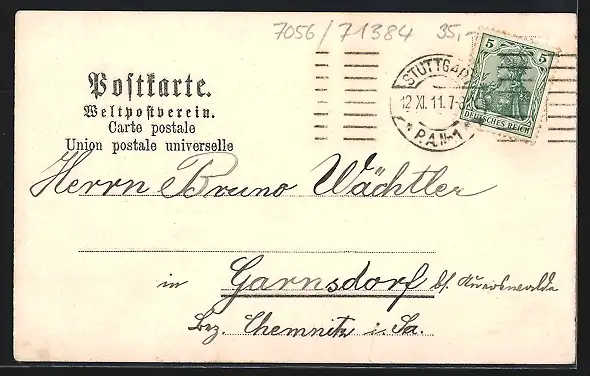 7056/71384 35,-
STUTTGAR
12 XI. 11. 7-8
P.A.№1
5 5
DEUTSCHES REICH
Postkarte.
Weltpostverein.
Carte postale
Union postale universelle
Herrn Bruno Wächtler
in Garnsdorf b/.
Bez. Chemnitz i. Sa.